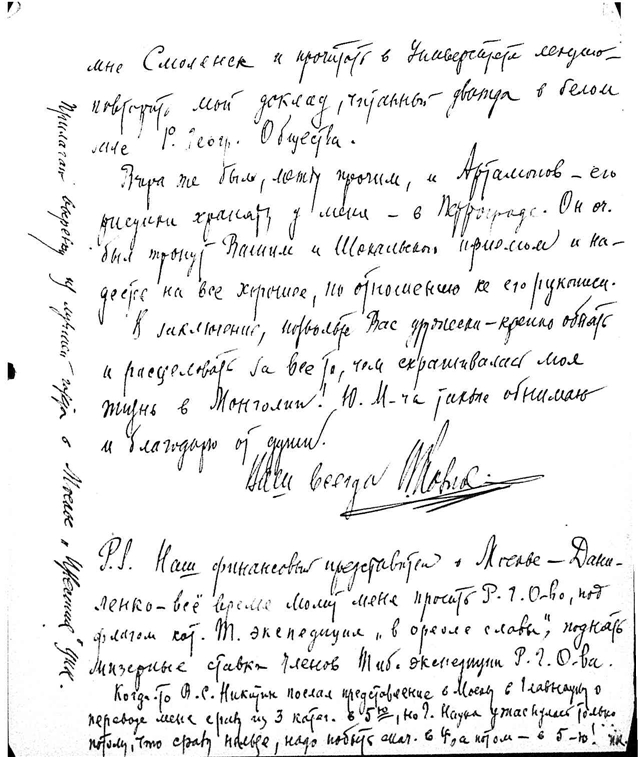 мне Смоленск и прочитать в Университете лекцию—
повторить мой доклад, читанный дважды в белом
зале Р. Геогр. Общества.
Вчера же был, между прочим, и Артамонов — его
рисунки хранят у меня — в Петрограде. Он оч.
был тронут Вашим и Шокальского приемом и на-
деется на все хорошее, по отношению к его рукописи.
В заключение, позвольте Вас дружески-крепко обнять
и расцеловать за все то, чем скрашивалась моя
жизнь в Монголии! Ю. М-ча также обнимаю
и благодарю от души.
Ваш всегда ПКозлов.
P.S. Наш финансовый представитель в Москве — Дани-
ленко — всё время молит меня просить Р.Г.О-во, под
флагом кот. Т. экспедиция „в ореоле славы“, поднять
мизерные ставки членов Тиб. экспедиции Р.Г.О-ва.
Когда-то В.С. Никитин послал представление в Москву в Главнауку о
переводе меня сразу из 3 катег. в 5ую, но Г. Наука ужаснулась только
потому, что сразу нельзя, надо побыть снач. в 4, а потом — в 5-ю! ПК.
Прилагаю вырезку из лучшей газеты в Москве „Известия“ ЦИК.